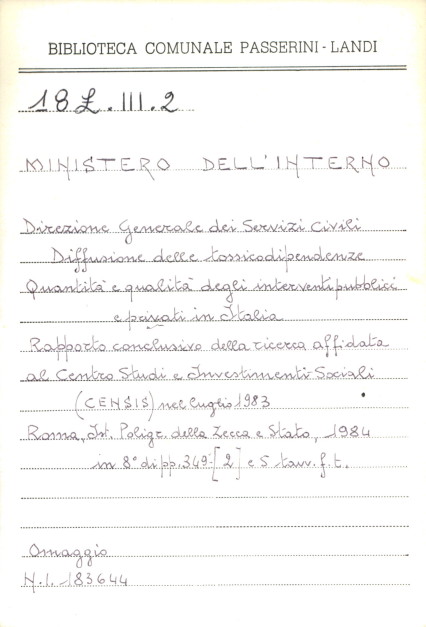 BIBLIOTECA COMUNALE PASSERINI - LANDI
18 L. III. 2
MINISTERO DELL'INTERNO
Direzione Generale dei Servizi Civili
Diffusione delle tossicodipendenze
Quantità e qualità degli interventi pubblici
e privati in Italia
Rapporto conclusivo della ricerca affidata
al Centro Studi e Investimenti Sociali
(CENSIS) nel luglio 1983
Roma, Ist. Poligr. della Zecca e Stato, 1984
in 8° di pp. 349-[2] e 5 tavv. f. t.
Omaggio
N.I. 183644